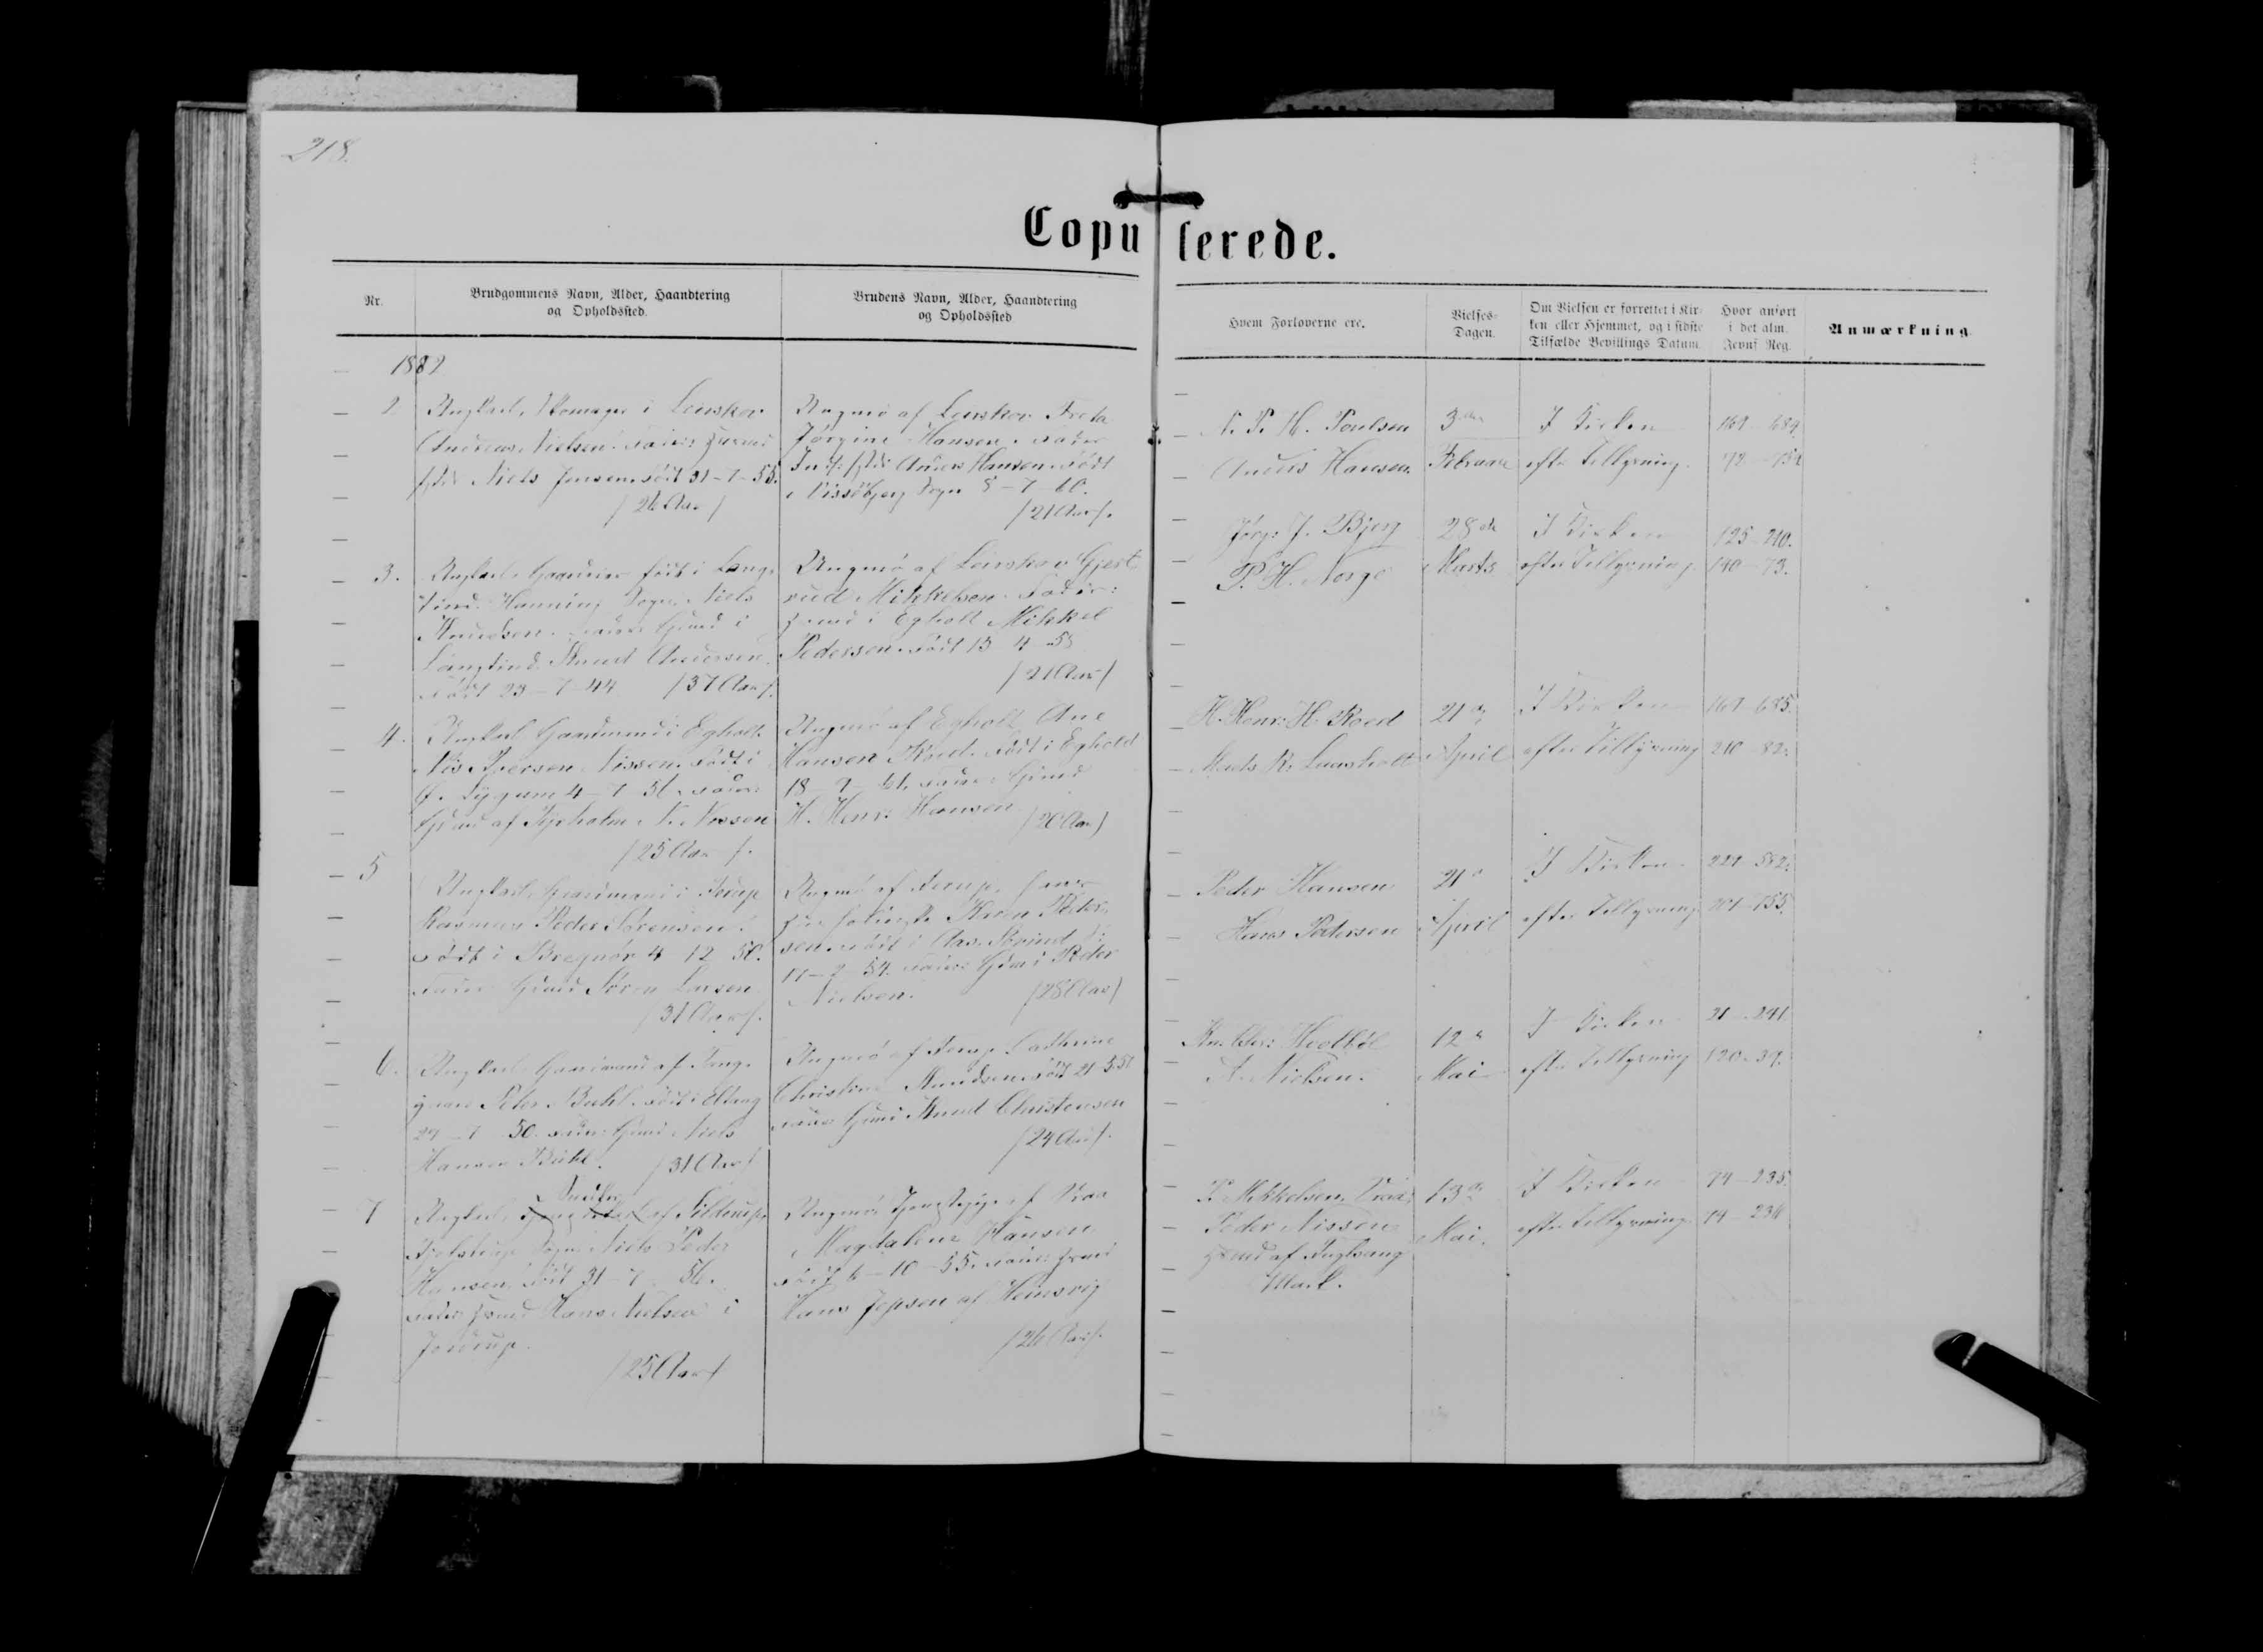 218.
Copulerede.
Nr.
Brudgommens Navn, Alder, Haandtering
og Opholdssted.
Brudens Navn, Alder, Haandtering
og Opholdssted
Hvem Forloverne ere.
Vielses-
Dagen.
Om Vielsen er forrettet i Kir-
ken eller Hjemmet, og i sidste
Tilfælde Bevillings Datum.
Hvor anført
i det alm.
Jevnf. Reg.
Anmærkning
1882
2
Ungkarl, Skomager i Leirskov
Andreas Nielsen. Fader:
Niels Jensen. Født 31-7-55.
/26 Aar/
Ungmø af Leirskov
Jørgine Hansen. Fader
Inds: Anders Hansen. Født
i Vissebjerg Sogn 8-7-60.
/21 Aar/.
N. P. H. Poulsen
Anders Hansen.
3die
Februar
I Kirken
efter Tillysning.
169-689
3.
Ungkarl, Gaardeier født i Lang-
lund Hanning Sogn, Niels
Knudsen. Fader: Gmd i
Langlund Knud Andersen.
Født 23-7-44 /37 Aar/.
Ungmø af Leirskov Gjert-
rud Mikkelsen. Fader:
i Egholt Mikkel
Pedersen. Født 13 4
/21 Aar/
Jørg: J. Bjerg
P. H. Norge
28de
Marts
I Kirken
efter Tillysning.
125-210.
190-73.
4.
Ungkarl Gaardmand i Egholt.
Nis Iversen Nissen. Født i
Ø. Lygum 4-7-56. Fader:
Gmd af N. Nissen
/25 Aar/.
Ungmø af Egholt Ane
Hansen Roed. Født i Egholt
18-9-61. Fader Gmd
H. Henr: Hansen /20 Aar/
H. Henr: H. Roed
Mads R. Laasholt
21de
April
I Kirken
efter Tillysning
169-685.
210-82.
5
Ungkarl, Gaardmand i Ferup
Rasmus Peder Sørensen.
Født i Bregnør 4 12 50.
Fader: Gmd Søren Larsen
/31 Aar/.
Ungmø af Ferup,
Karen Peder-
sen. Født i
17-2-54. Fader: Gmd Peder
Nielsen. /28 Aar/
Peder Hansen
Hans Pedersen
21de
April
I Kirken
efter Tillysning
221-582.
201-755.
6.
Ungkarl Gaardmand af
Peter Buhl. Født i Eltang
29-7-50. Fader: Gmd Niels
Hansen Buhl. /31 Aar/
Ungmø af Ferup Cathrine
Christine Knudsen. Født 21-5-57
Fader: Gmd Knud Christensen
/24 Aar/.
A. Nielsen.
12te
Mai
I Kirken
efter Tillysning
21-241
120-39.
7
Ungkarl, af
Sogn Niels Peder
Hansen. Født 31-7-56.
Fader: Hans Nielsen i
Jordrup.
/25 Aar/
Ungmø, Tjenestepige af Vraa
Magdalene Hansen
Født 6-10-55. Fader:
Hans Jepsen af Heinsvig
/26 Aar/.
P. Mikkelsen, Vraa,
Peder Nissen,
af Fuglsang
Mark.
13de
Mai.
I Kirken
efter Tillysning.
74-235.
74-234